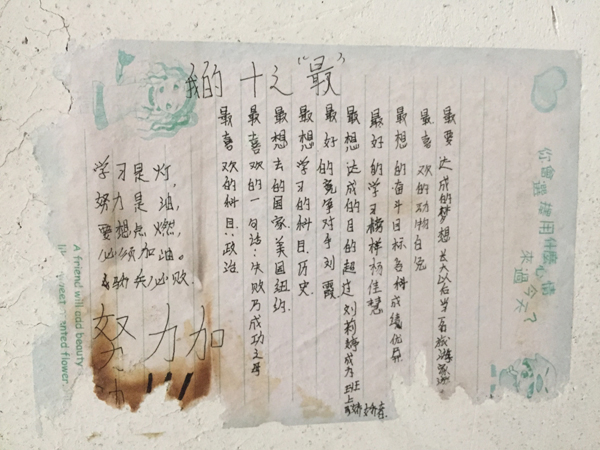 我的十之“最”
最要达成的梦想长大以后当
最喜欢的动物白兔
最想的奋斗目标各科成绩优异
最好的学习榜样杨佳慧
最想达成的目的超过刘莉婷成为班上
最好的竞争对手刘霞
最想学习的科目:历史.
最想去的国家:美国纽约.
最喜欢的一句话:失败乃成功之母
最喜欢的科目:政治
学习是灯,
努力是油,
要想点燃,
必须加油。
必败.
努力加
A friend will add beauty
flower.
心情
來過今天?